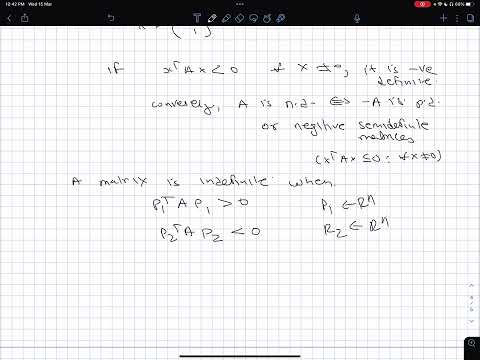 12:42 PM Wed 15 Mar
68%
if xᵀAx < 0 ∀ x ≠ 0, it is -ve
definite.
conversely, A is n.d. ⇔ -A is p.d.
or negitive semidefinite
matrices
(xᵀAx ≤ 0 : ∀x≠0)
A matrix is indefinite when
P₁ᵀ A P₁ > 0 P₁ ∈ Rⁿ
P₂ᵀ A P₂ < 0 P₂ ∈ Rⁿ